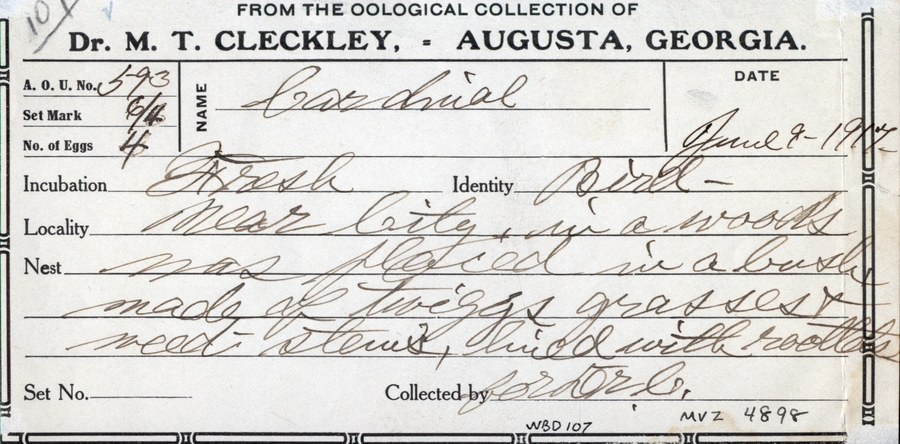 10/
FROM THE OOLOGICAL COLLECTION OF
Dr. M. T. CLECKLEY, = AUGUSTA, GEORGIA.
A. O. U. No. 593
NAME Cardinal
DATE
Set Mark 6/4
No. of Eggs 4
June 9 - 1917
Incubation Fresh Identity Bird -
Locality Near City, in a woods
Nest was placed in a bush
made of twiggs grasses &
weed stems, lined with rootlets
Set No. Collected by
WBD 107 MVZ 4898